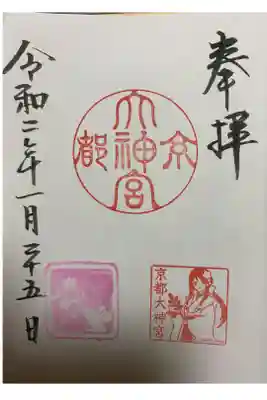 奉拝
京都
大神宮
京都大神宮
令和二年一月二十五日